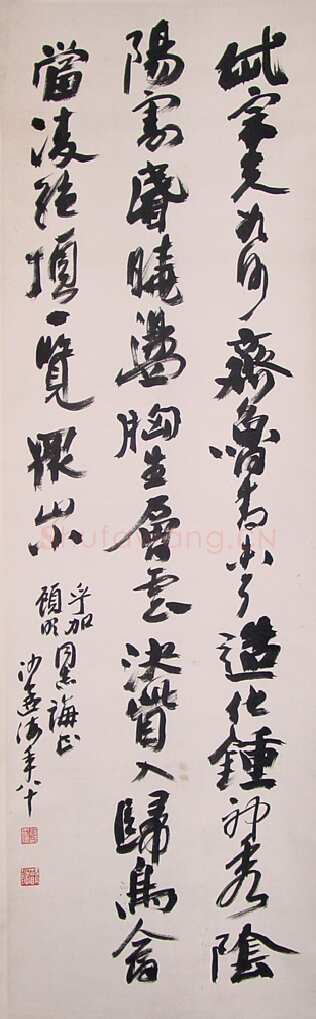 岱宗夫如何齊魯青未了造化鍾神秀陰
陽割昏曉盪胸生層雲決眥入歸鳥會
當凌絕頂一覽眾山小
同志誨正
沙孟海年八十
Shufawang.CN